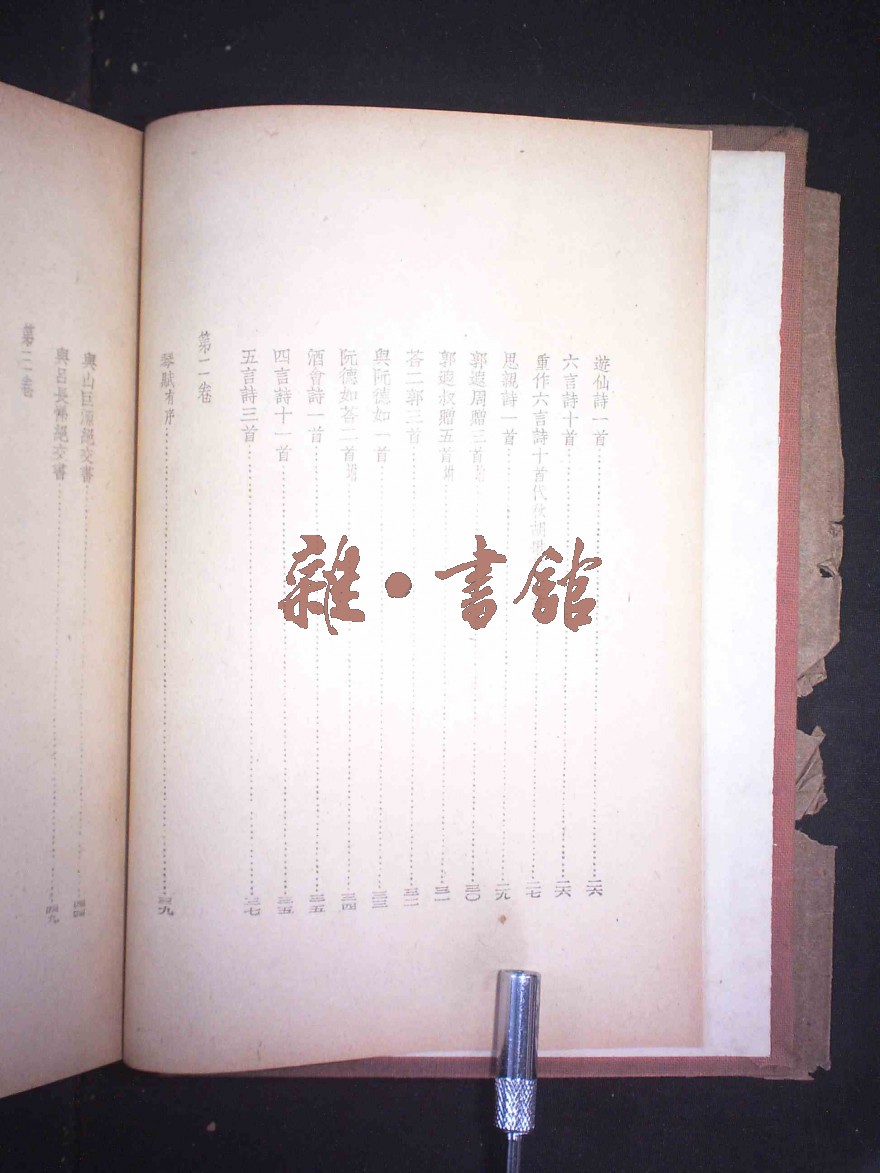 遊仙詩一首 二六
六言詩十首 二六
重作六言詩十首代秋胡 二七
思親詩一首 二九
郭遐周贈三首附 三〇
郭遐叔贈五首附 三一
荅二郭三首 三二
與阮德如一首 三三
阮德如荅二首附 三四
酒會詩一首 三五
四言詩十一首 三五
五言詩三首 三七
第二卷
琴賦有序
與山巨源絕交書
與呂長悌絕交書
第三卷
雜·書館